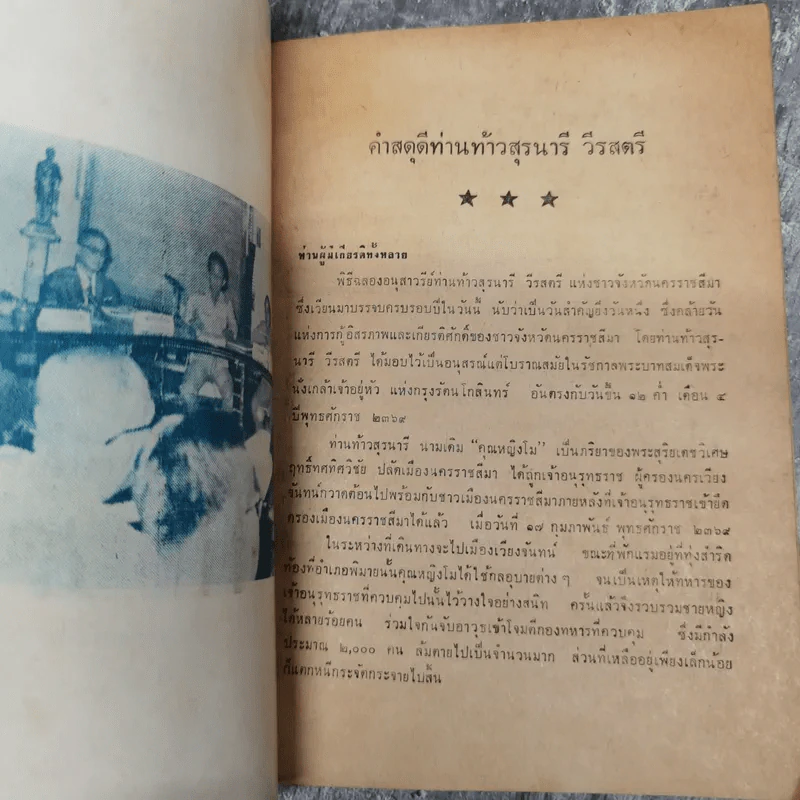 คำสดุดีท่านท้าวสุรนารี วีรสตรี
ท่านผู้มีเกียรติทั้งหลาย
พิธีฉลองอนุสาวรีย์ท่านท้าวสุรนารี วีรสตรี แห่งชาวจังหวัดนครราชสีมา
ซึ่งเวียนมาบรรจบครบรอบปีในวันนี้ นับว่าเป็นวันสำคัญยิ่งวันหนึ่ง ซึ่งคล้ายวัน
แห่งการกู้อิสรภาพและเกียรติศักดิ์ของชาวจังหวัดนครราชสีมา โดยท่านท้าวสุร-
นารี วีรสตรี ได้มอบไว้เป็นอนุสรณ์แต่โบราณสมัยในรัชกาลพระบาทสมเด็จพระ
นั่งเกล้าเจ้าอยู่หัว แห่งกรุงรัตนโกสินทร์ อันตรงกับวันขึ้น ๑๒ ค่ำ เดือน ๔
ปีพุทธศักราช ๒๓๖๙
ท่านท้าวสุรนารี นามเดิม "คุณหญิงโม" เป็นภริยาของพระสุริยเดชวิเศษ
ฤทธิ์ทศทิศวิชัย ปลัดเมืองนครราชสีมา ได้ถูกเจ้าอนุรุทธราช ผู้ครองนครเวียง
จันทน์กวาดต้อนไปพร้อมกับชาวเมืองนครราชสีมาภายหลังที่เจ้าอนุรุทธราชเข้ายึด
ครองเมืองนครราชสีมาได้แล้ว เมื่อวันที่ ๑๗ กุมภาพันธ์ พุทธศักราช ๒๓๖๙
ในระหว่างที่เดินทางจะไปเมืองเวียงจันทน์ ขณะที่พักแรมอยู่ที่ทุ่งสำริด
ท้องที่อำเภอพิมายนั้นคุณหญิงโมได้ใช้กลอุบายต่าง ๆ จนเป็นเหตุให้ทหารของ
เจ้าอนุรุทธราชที่ควบคุมไปนั้นไว้วางใจอย่างสนิท ครั้นแล้วจึงรวบรวมชายหญิง
ได้หลายร้อยคน ร่วมใจกันจับอาวุธเข้าโจมตีกองทหารที่ควบคุม ซึ่งมีกำลัง
ประมาณ ๒,๐๐๐ คน ล้มตายไปเป็นจำนวนมาก ส่วนที่เหลืออยู่เพียงเล็กน้อย
ก็แตกหนีกระจัดกระจายไปสิ้น